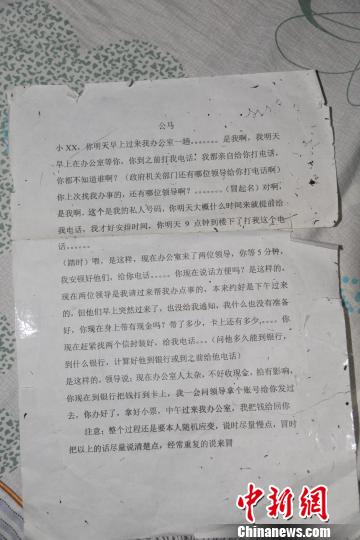 公马
小 XX，你明天早上过来我办公室一趟。。。。。。。是我啊，我明天
早上在办公室等你，你到之前打我电话，我都亲自给你打电话，
你都不知道谁啊？（政府机关部门还有哪位领导给你打电话啊）
你上次找我办事的，还有哪位领导啊？。。。。。（冒起名）对啊，
是我啊，这个是我的私人号码，你明天大概什么时间来就提前给
我电话，我才好安排时间，你明天 9 点钟到楼下了打我这个电
话。。。。。。
(踏时) 喂，是这样，现在办公室来了两位领导，你等 5 分钟，
我安顿好他们，给你电话。。。。。你现在说话方便吗？是这样的，
现在两位领导是我请过来帮我办点事的，本来约好是下午过来
的，但他们早上突然过来了，也没给我通知，我什么也没有准备
好，你现在身上带有现金吗？带了多少，卡上还有多少，。。。。你
现在赶紧我两个信封装好，给我电话。。。（问他多久能到银行，
到什么银行，计算好他到银行或到之前给他电话）
是这样的，领导说：现在办公室人太杂，不好收现金，怕有影响，
你现在到银行把钱打到卡上，我一会问领导拿个账号给你发过
去，你办好了，拿好小票，中午过来我办公室，我把钱给回你
注意：整个过程还是要本人随机应变，说时尽量慢点，冒时
把以上的话尽量说清楚点，经常重复的说来冒
中新网
Chinanews.com